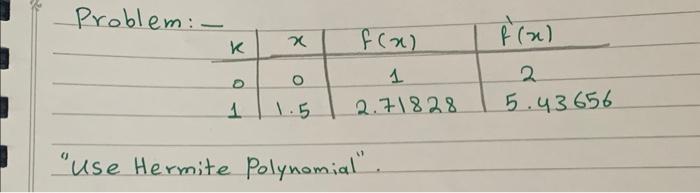 Problem:-
K x f(x) f`(x)
0 0 1 2
1 1.5 2.71828 5.43656
"Use Hermite Polynomial".